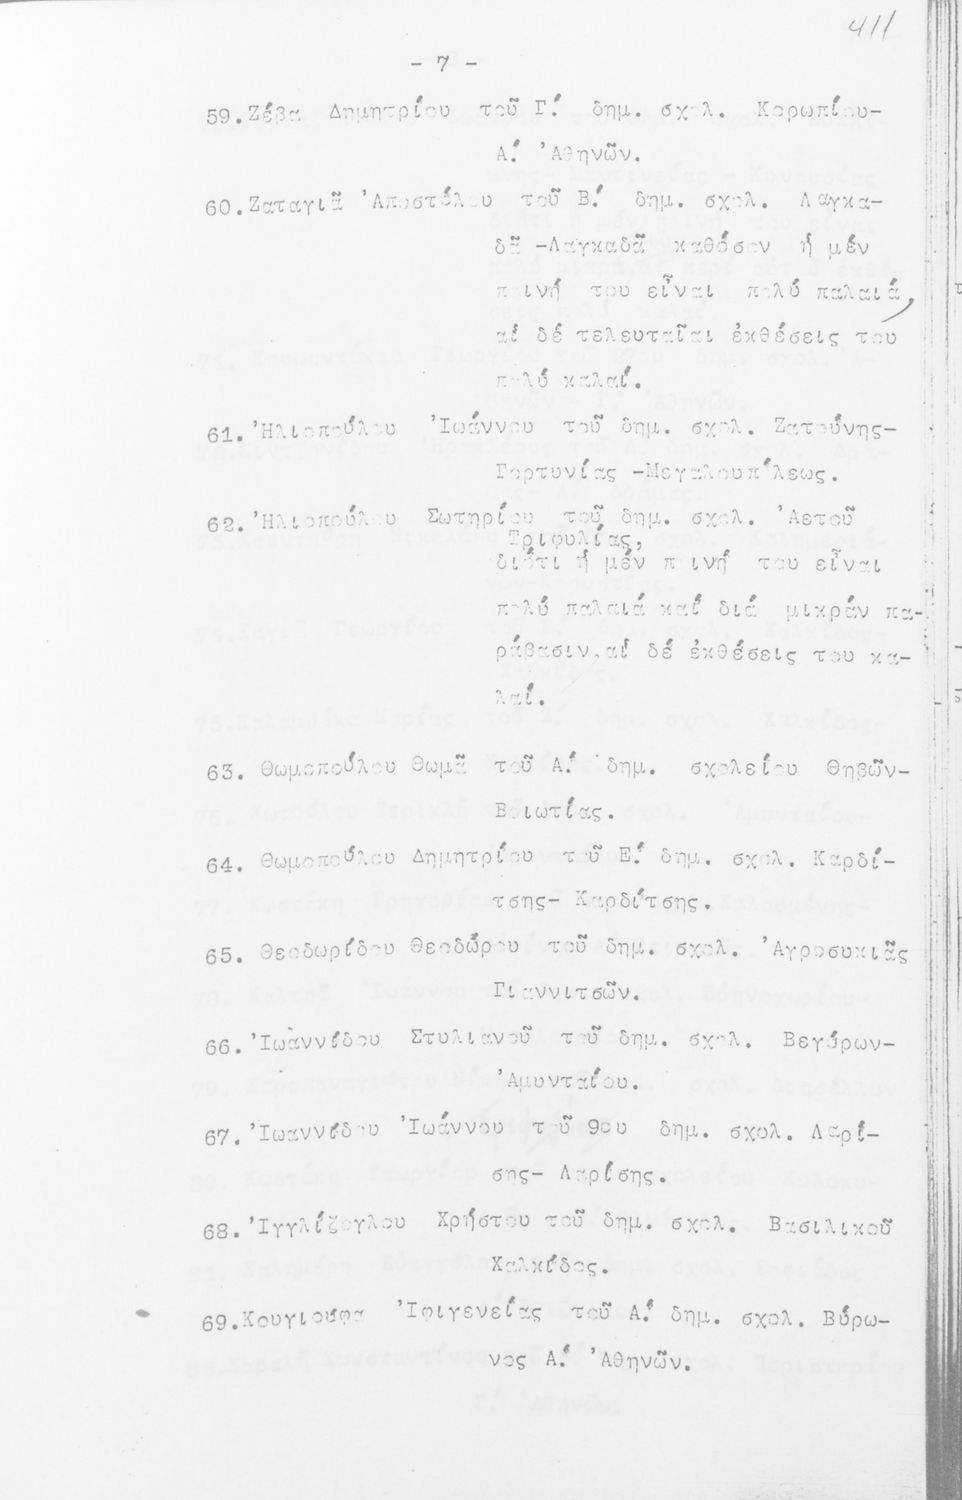 411
- 7 -
59.Ζέβα Δημητρίου τοῦ Γ΄. δημ. σχολ. Κορωπίου-
Α΄. Ἀθηνῶν.
60.Ζαταγιᾶ Ἀποστόλου τοῦ Β΄. δημ. σχολ. Λαγκα-
δᾶ -Λαγκαδᾶ καθόσον ἡ μέν
ποινή του εἶναι πολύ παλαιά,
αἱ δέ τελευταῖαι ἐκθέσεις του
πολύ καλαί.
61.Ἠλιοπούλου Ἰωάννου τοῦ δημ. σχολ. Ζατούνης-
Γορτυνίας -Μεγαλουπόλεως.
62.Ἠλιοπούλου Σωτηρίου τοῦ δημ. σχολ. Ἀετοῦ
Τριφυλίας,
διότι ἡ μέν ποινή του εἶναι
πολύ παλαιά καί διά μικράν πα-
ράβασιν,αἱ δέ ἐκθέσεις του κα-
λαί.
63. Θωμοπούλου Θωμᾶ τοῦ Α΄. δημ. σχολείου Θηβῶν-
Βοιωτίας.
64. Θωμοπούλου Δημητρίου τοῦ Ε΄. δημ. σχολ. Καρδί-
τσης- Καρδίτσης.
65. Θεοδωρίδου Θεοδώρου τοῦ δημ. σχολ. Ἀγροσυκιᾶς
Γιαννιτσῶν.
66.Ἰωαννίδου Στυλιανοῦ τοῦ δημ. σχολ. Βεγόρων-
Ἀμυνταίου.
67.Ἰωαννίδου Ἰωάννου τοῦ 9ου δημ. σχολ. Λαρί-
σης- Λαρίσης.
68.Ἰγγλίζογλου Χρήστου τοῦ δημ. σχολ. Βασιλικοῦ
Χαλκίδος.
69.Κουγιούφα Ἰφιγενείας τοῦ Α΄. δημ. σχολ. Βύρω-
νος Α΄. Ἀθηνῶν.